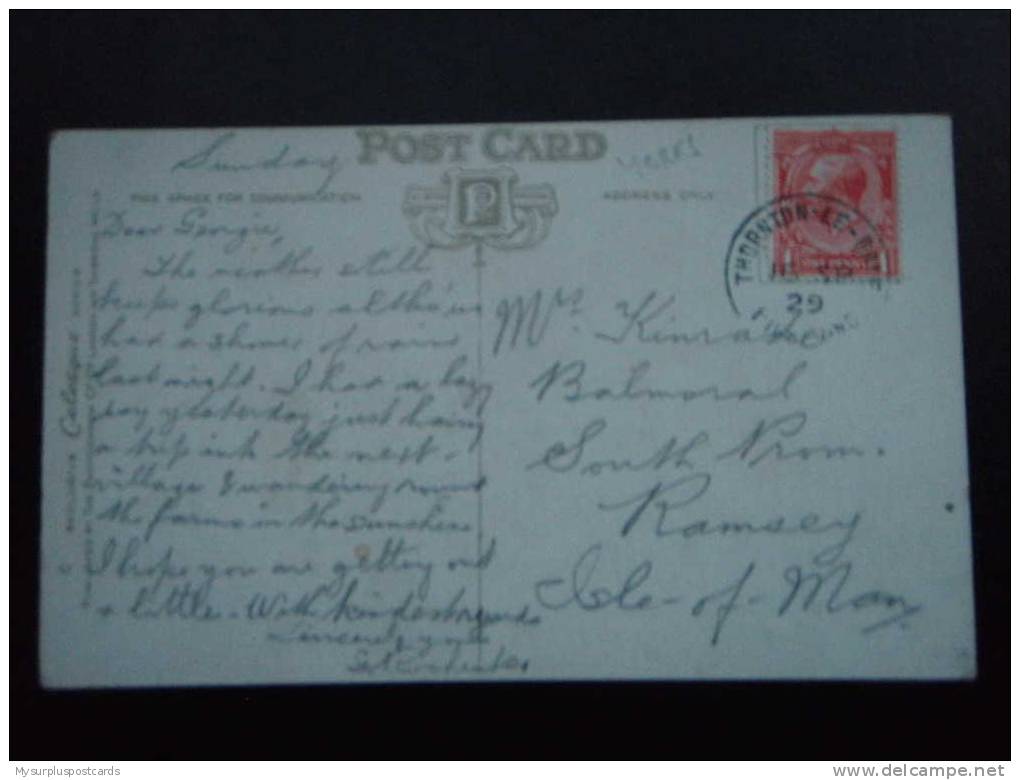 Sunday
POST CARD
YORKS
THIS SPACE FOR COMMUNICATION
ADDRESS ONLY
Dear Georgie,
The weather still
keeps glorious altho' we
had a shower of rain
last night. I had a lazy
day yesterday just having
a trip into the next
village & wandering round
the farms in the sunshine
I hope you are getting out
a little - With kindest regards
Sincerely yours
THORNTON-LE-
29
1
1
Mrs. Kinrade
Balmoral
South Prom.
Ramsey
Isle-of-Man
Celotype
Mysurpluspostcards
www.delcampe.net